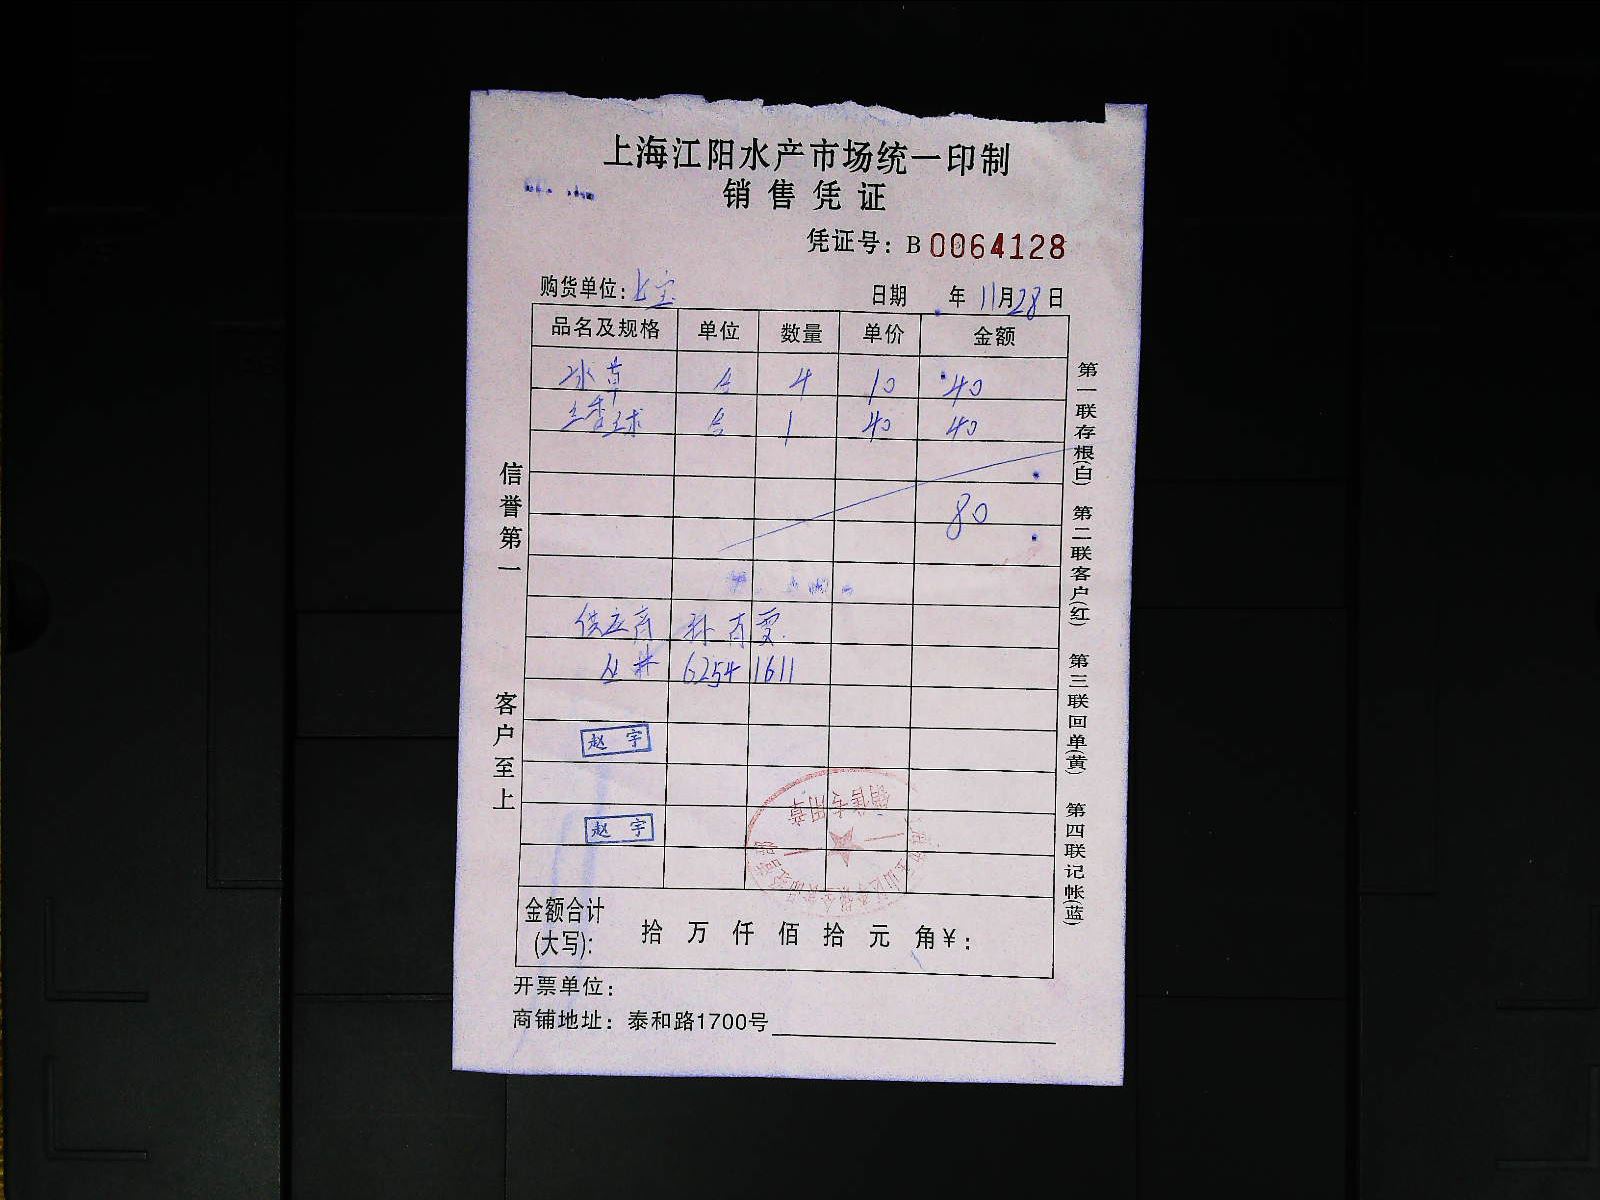 上海江阳水产市场统一印制
销售凭证
凭证号：B 0064128
购货单位：七宝 日期 年 11月28日
品名及规格 单位 数量 单价 金额
冰草 合 4 10 40
三季球 合 1 40 40
80
供应商 孙
6254 1611
赵宇
赵宇
销售专用章
金额合计(大写)： 拾 万 仟 佰 拾 元 角 ¥：
开票单位：
商铺地址：泰和路1700号
信誉第一
客户至上
第一联存根(白) 第二联客户(红) 第三联回单(黄) 第四联记帐(蓝)